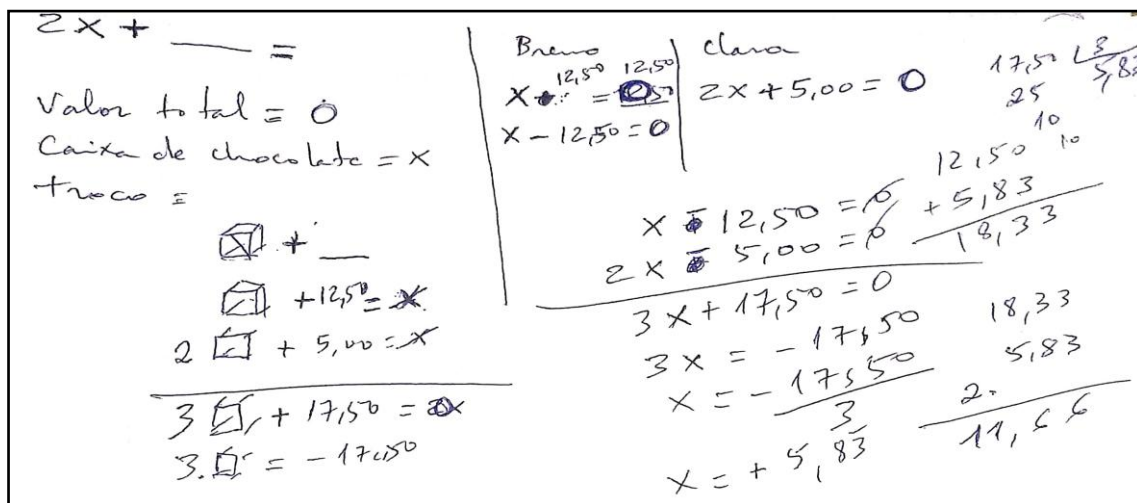 2x + ___ =
Valor total = 0
Caixa de chocolate = x
troco =
+ ___
+12,50 = x
2 + 5,00 = x
3 + 17,50 =
3. = - 17,50
Breno
12,50 12,50
x =
x - 12,50 = 0
Clara
2x + 5,00 = 0
17,50 3
25 5,83
10
10
12,50
+ 5,83
18,33
x 12,50 = 0
2x 5,00 = 0
3x + 17,50 = 0
3x = - 17,50
x = - 17,50
3
x = + 5,83
18,33
5,83
2.
11,66